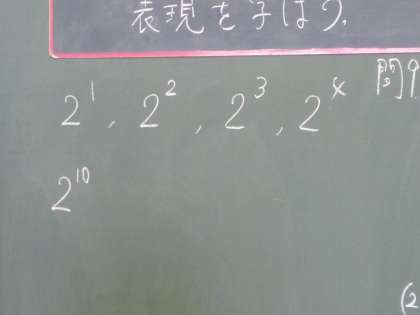 表現を学ぼう.
2¹, 2², 2³, 2⁴ 問
2¹⁰
(2